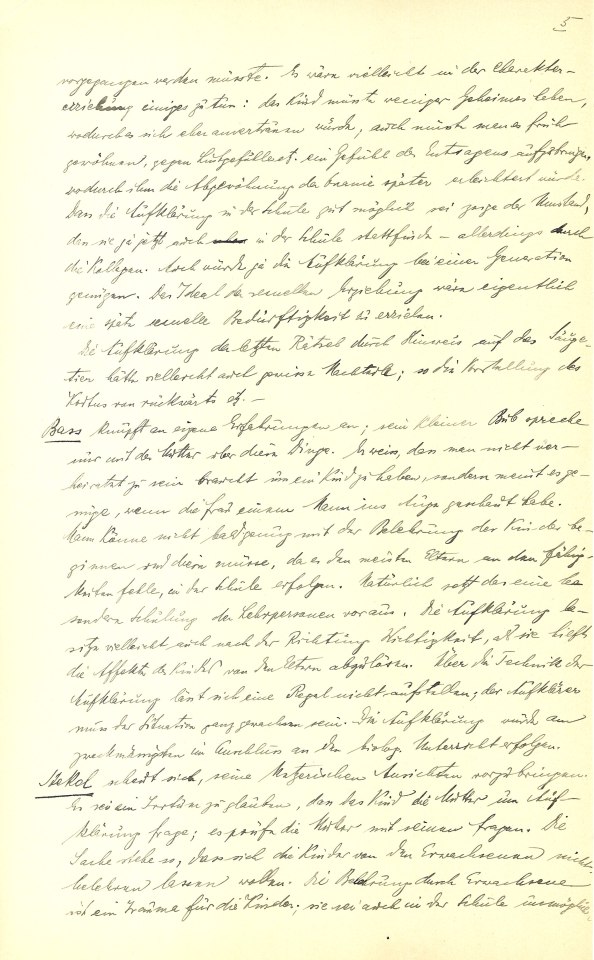 5
vorgegangen werden müsste. Es wäre vielleicht in der Charakter-
erziehung einiges zu tun: das Kind müsste weniger Geheimes haben,
wodurch es sich eher anvertrauen würde, auch müsste man es früh
gewöhnen, gegen Lustgefühle ein Gefühl des Entsagens aufzubringen,
wodurch ihm die Abgewöhnung der Onanie später erleichtert würde.
Dass die Aufklärung in der Schule gut möglich sei zeige der Umstand,
dass sie ja jetzt auch in der Schule stattfinde – allerdings durch
die Kollegen. Auch würde ja die Aufklärung bei einer Generation
genügen. Das Ideal der sexuellen Erziehung wäre eigentlich
eine späte sexuelle Bedürftigkeit zu erzielen.
Die Aufklärung der letzten Rätsel durch Hinweis auf das Säuge-
tier hätte vielleicht auch gewisse Nachteile; so die Vorstellung des
Koitus von rückwärts etc. –
Bass knüpft an eigene Erfahrungen an; sein kleiner Bub spreche
nur mit der Mutter über diese Dinge. Er weiss, dass man nicht ver-
heiratet zu sein braucht um ein Kind zu haben, sondern meint es ge-
nüge, wenn die Frau einem Mann ins Auge geschaut habe.
Man könne nicht bald genug mit der Belehrung der Kinder be-
ginnen und diese müsse, da es den meisten Eltern an den Fähig-
keiten fehle, in der Schule erfolgen. Natürlich setzt das eine be-
sondere Schulung der Lehrpersonen voraus. Die Aufklärung be-
sitze vielleicht auch nach der Richtung Wichtigkeit, als sie hieft
die Affekte des Kindes von den Eltern abzulösen. Über die Technik der
Aufklärung lässt sich eine Regel nicht aufstellen; der Aufklärer
muss der Situation ganz gewachsen sein. Die Aufklärung würde am
zweckmässigsten im Anschluss an den biolog. Unterricht erfolgen.
Stekel scheut sich, seine ketzerischen Ansichten vorzubringen.
Es sei ein Irrtum zu glauben, dass das Kind die Mutter um Auf-
klärung frage; es prüfe die Mutter mit seinen Fragen. Die
Sache stehe so, dass sich die Kinder von den Erwachsenen nicht
belehren lassen wollen. Die Belehrung durch Erwachsene
ist ein Trauma für die Kinder; sie sei auch in der Schule unmöglich.